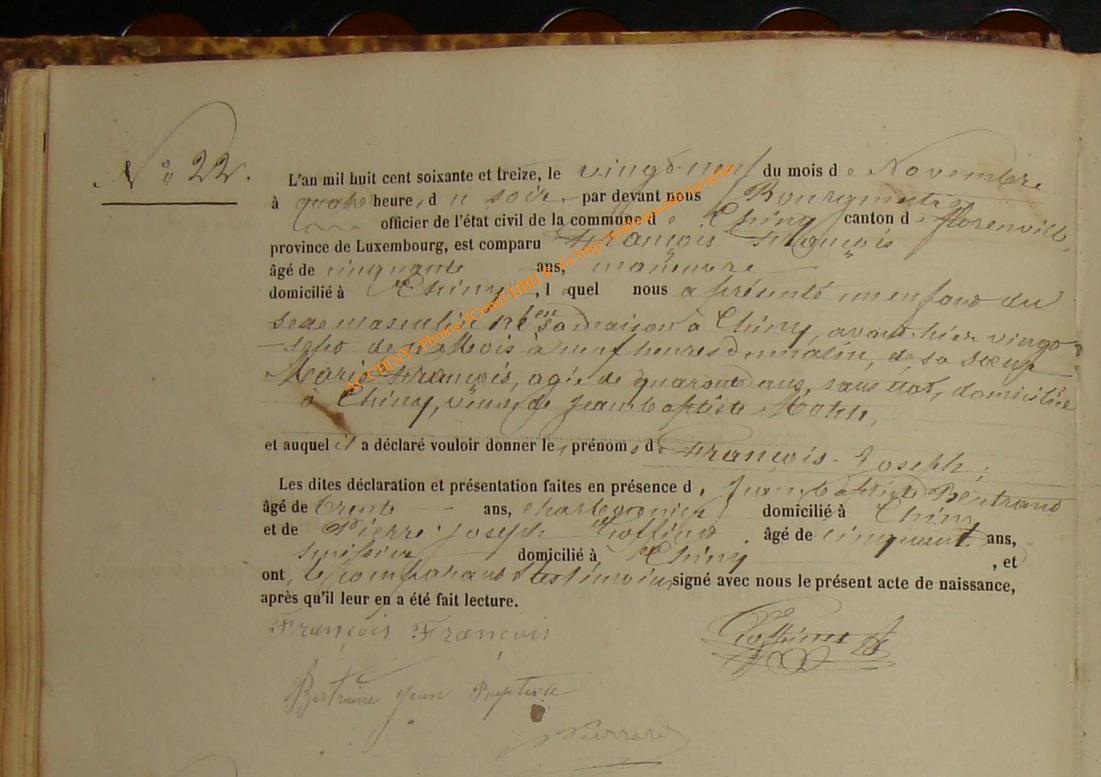 N° 22.
L'an mil huit cent soixante et treize, le vingt-neuf du mois de Novembre
à quatre heure, du soir, par devant nous Bourgmestre
officier de l'état civil de la commune de Chiny canton de florenville,
province de Luxembourg, est comparu François François
âgé de cinquante ans, manœuvre
domicilié à Chiny, lequel nous a présenté un enfant du
sexe masculin né en sa maison à Chiny, avant hier vingt
sept de ce Mois à neuf heures du matin, de sa sœur
Marie François, agée de quarante ans, sans état, domiciliée
à Chiny, veuve de Jean baptiste
et auquel il a déclaré vouloir donner les prénoms de François-Joseph.
Les dites déclaration et présentation faites en présence de Jean baptiste Bertrand
âgé de trente ans, domicilié à Chiny
et de Pierre Joseph Goffinet âgé de cinquante ans,
domicilié à Chiny, et
ont, le comparant & les témoins signé avec nous le présent acte de naissance,
après qu'il leur en a été fait lecture.
François François
Goffinet
Jean Baptiste
Pierrard